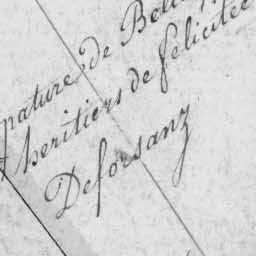 nature, de
& heritiers de felicitée
Deforsanz